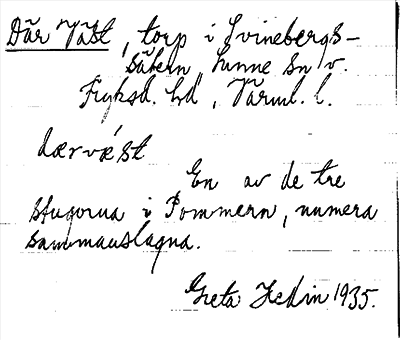 Där Väst, torp i Svinebergs-
sätern Sunne sn v.
Fryksd. hd, Värml. l.
dærvǽst
En av de tre
stugorna i Pommern, numera
sammanslagna.
Greta Hedin 1935.